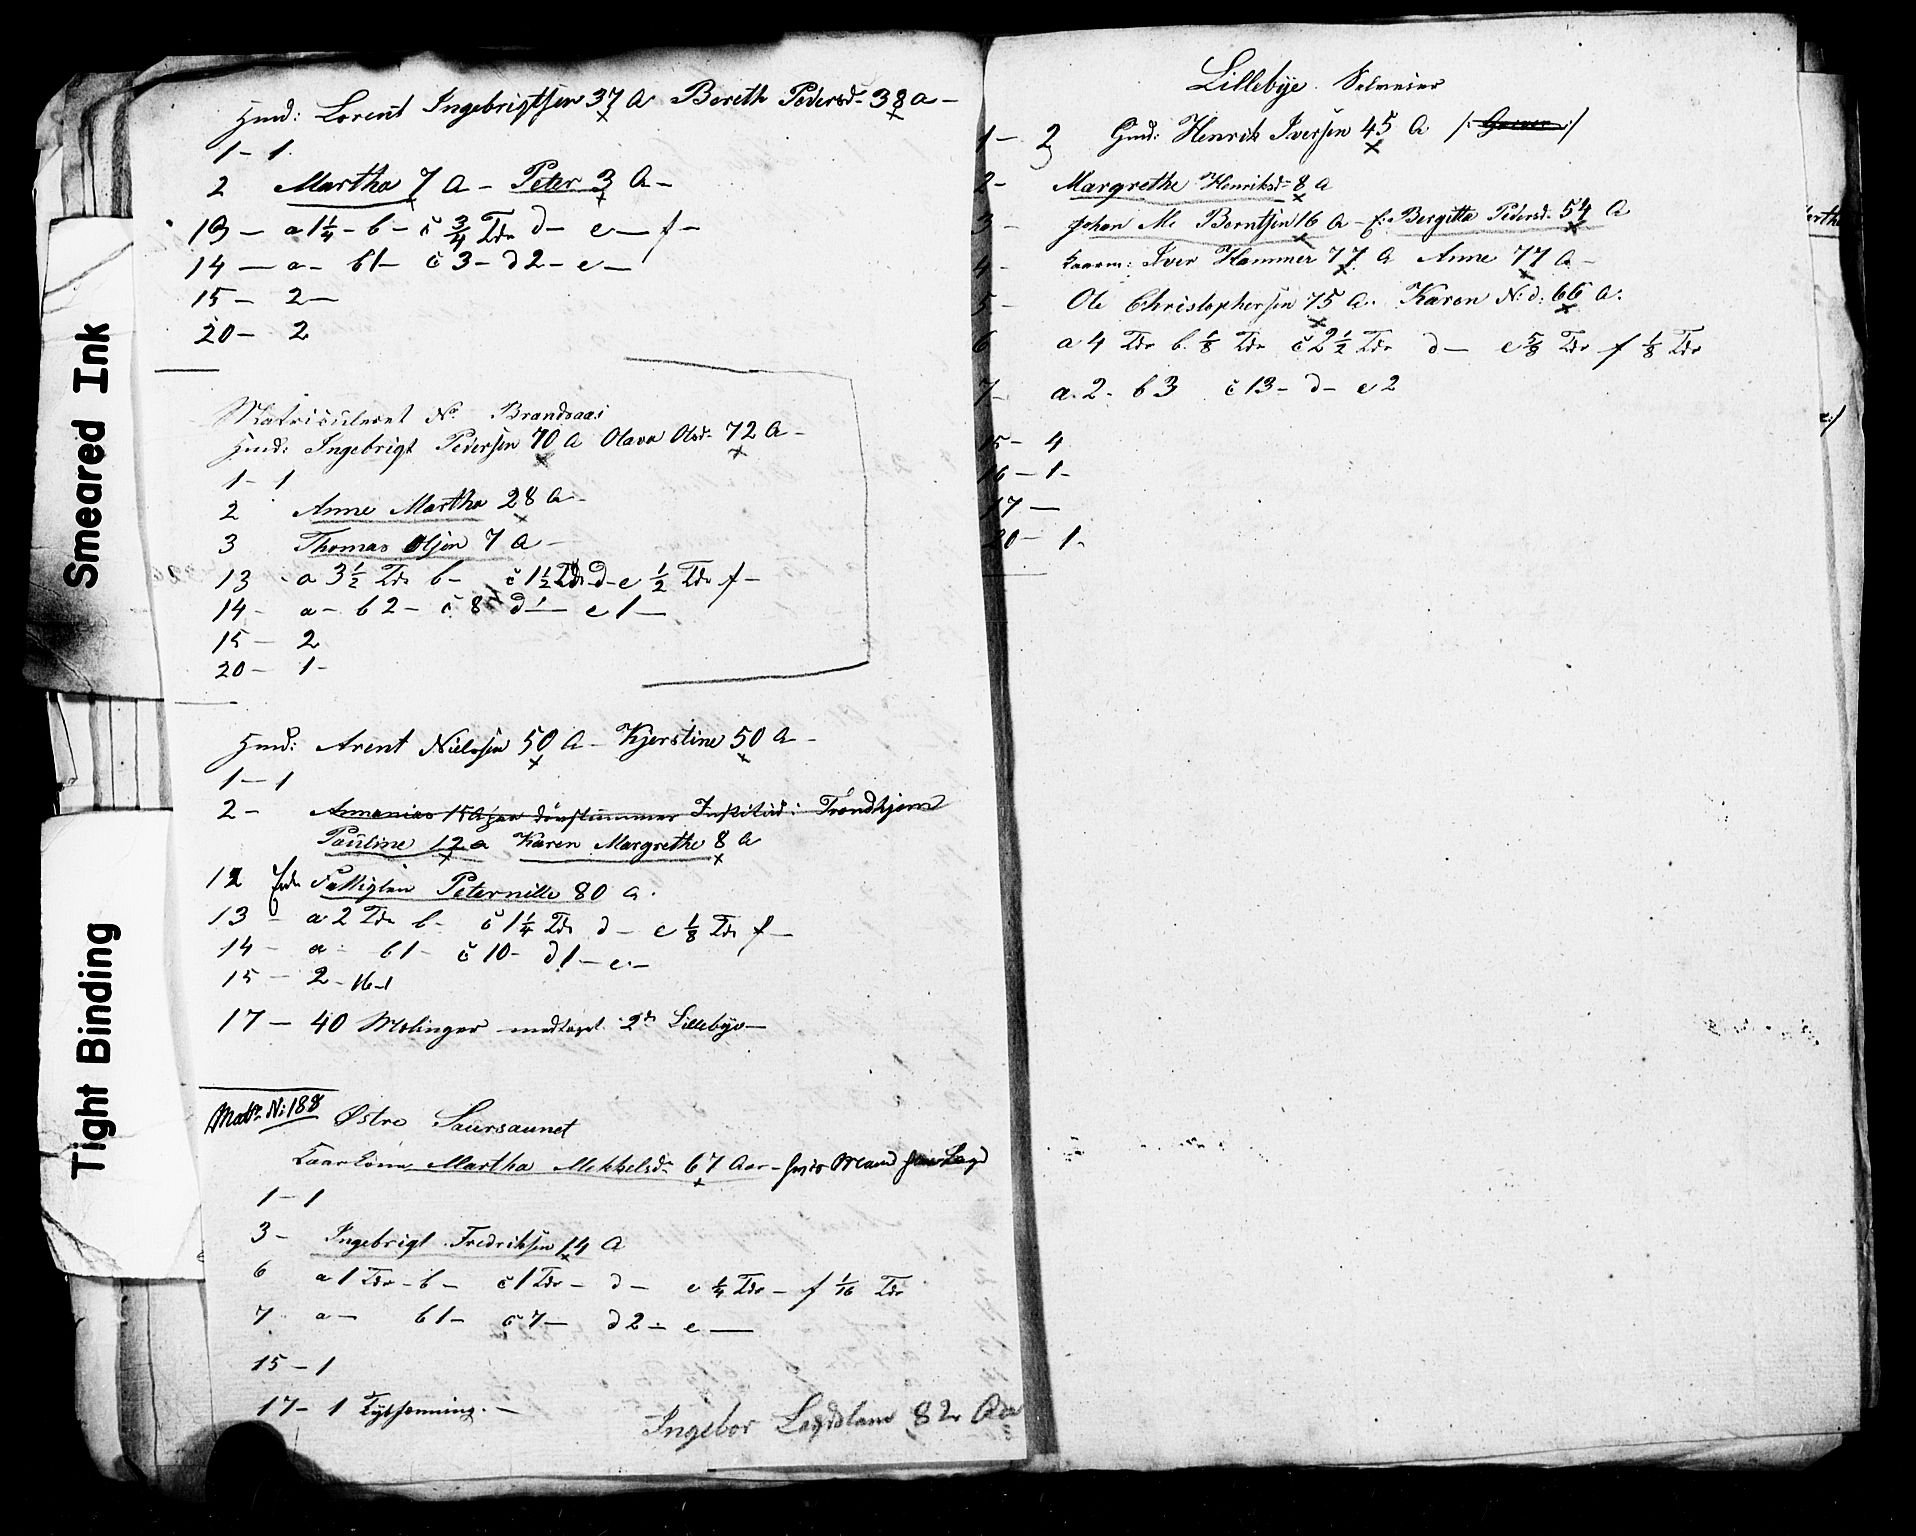 Huusd: Lorents Ingebrigtsen 37 A Bereth Pedersd. 38 a -
1 - 1.
2 Martha 7 A - Peter 3 A -
13 - a 1 1/4 - b - c 3/4 Tdr d - e - f -
14 - a - b 1 - c 3 - d 2 - e -
15 - 2 -
20 - 2
Matriculeret No Brandsaas
Huusd: Ingebrigt Pedersen 70 A Olava Olsd. 72 A -
1 - 1
2 Anne Martha 28 A -
3 Thomas Olsen 7 A -
13 - a 3 1/2 Tdr b - c 1 1/2 Tdr d - e 1/2 Tdr f -
14 - a - b 2 - c 8 d - e 1 -
15 - 2
20 - 1 -
Huusd: Arent Nielssen 50 A - Kjerstine 50 A -
1 - 1
2 - Annanias 15 Døvstummes Institut i Trondhjem
Pauline 12 a Karen Margrethe 8 A
12 Fattiglem Peternille 80 a.
13 - a 2 Tdr b - c 1 1/4 Tdr d - e 1/8 Tdr f -
14 - a - b 1 - c 10 - d 1 - e -
15 - 2 - 16 - 1
17 - 40 Mælinger medtaget 2d Lillebye -
Matr. N: 188 Østre Saursaunet
Kaarkone Martha Mikkelsd. 67 Aar - Mand
1 - 1
3 - Ingebrigt Fredriksen 14 A
6 a 1 Tdr - b - c 1 Tdr - d - e 1/4 Tdr - f 1/16 Tdr
7 a - b 1 - c 7 - d 2 - e -
15 - 1
17 - 1 -
Ingebor Lægdslem 82 Aa
Lillebye. Selveier
1 - 2 Gmd: Henrik Iversen 45 A /: :/
2 - Margrethe Henriksd. 8 A
3 - Johan M. Berntsen 16 A - f: Bergitta Pedersd. 54 A
4 - Kaarm: Iver Hammer 77 A Anne 77 A -
5 - Ole Christophersen 75 A. Karen N. d: 66 A.
6 a 4 Tdr b. 1/8 Tdr c 2 1/2 Tdr d - e 5/8 Tdr f 1/8 Tdr
7 - a. 2 - b 3 c 13 - d - e 2
15 - 4
16 - 1 -
17 -
20 - 1 -
Smeared Ink
Tight Binding